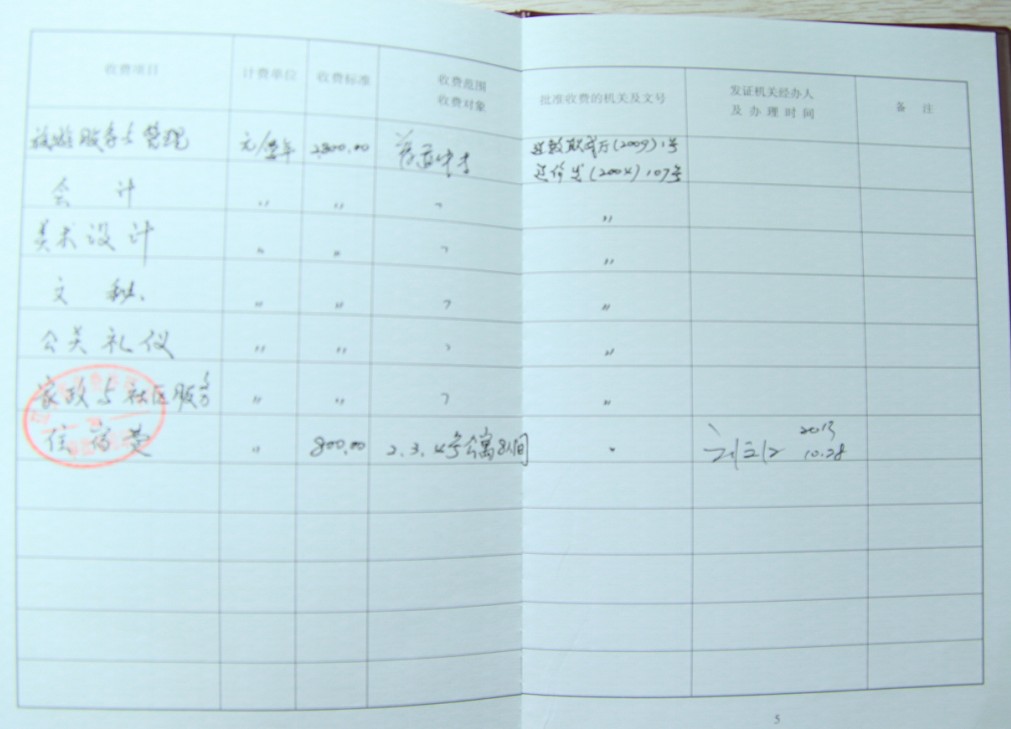 收费项目 计费单位 收费标准 收费范围 收费对象 批准收费的机关及文号 发证机关经办人及办理时间 备 注
旅游服务与管理 元/生年 2,800.00 (2009)1号
(2004)107号
会 计 〃 〃 〃 〃
美术设计 〃 〃 〃 〃
文 秘 〃 〃 〃 〃
公关礼仪 〃 〃 〃 〃
家政与社区服务 〃 〃 〃 〃
住宿费 〃 800.00 2.3.4号公寓8人间 〃 2013
10.28
5